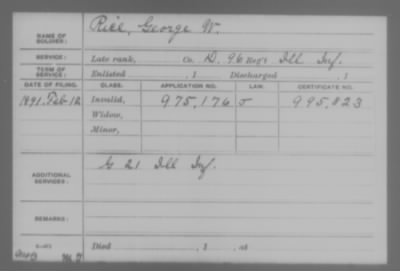 NAME OF SOLDIER: Rice, George W.
SERVICE: Late rank, Co. D, 96 Reg't Ill Inf.
TERM OF SERVICE: Enlisted , 1 Discharged , 1
DATE OF FILING. CLASS. APPLICATION NO. LAW. CERTIFICATE NO.
1891, Feb. 12 Invalid, 975,176 995,823
Widow,
Minor,
ADDITIONAL SERVICES: G 21 Ill Inf.
REMARKS:
Died , 1 , at